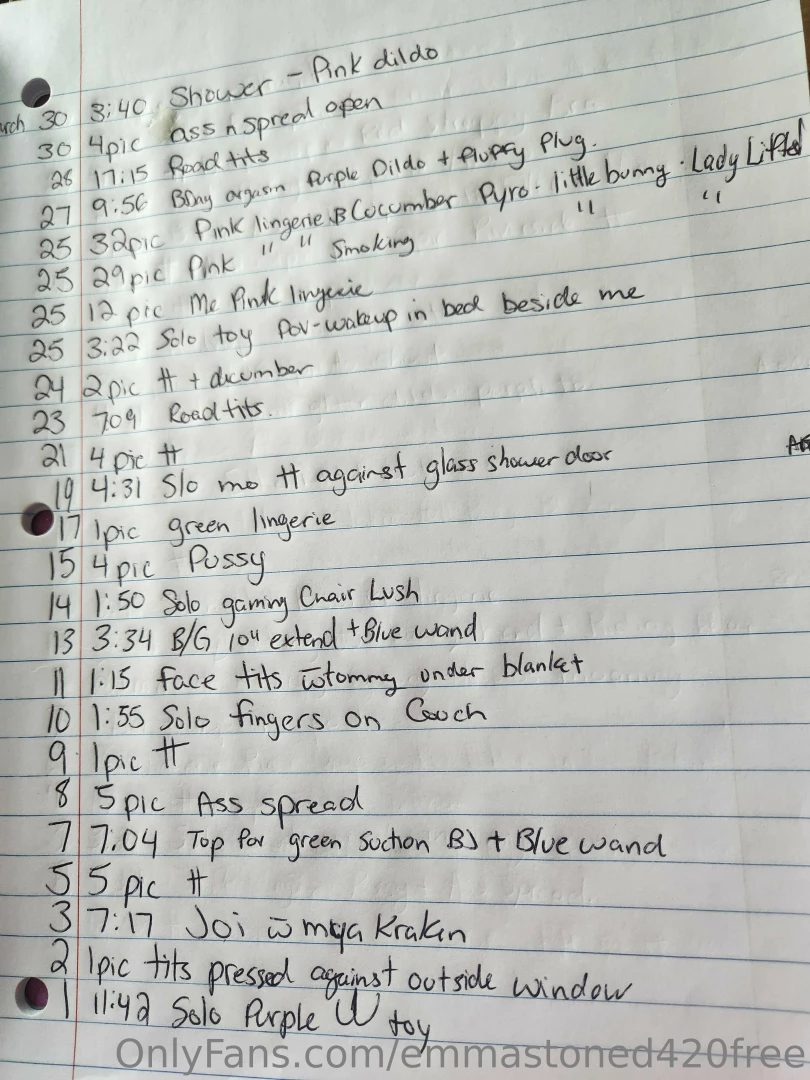 30 3:40 Shower - Pink dildo
30 4pic ass n spread open
28 17:15 Road tits
27 9:56 orgasm Purple Dildo + Fluffy Plug.
25 32pic Pink lingerie Cucumber Pyro · little bunny · Lady Lifted
25 29pic Pink " " Smoking " "
25 12 pic Me Pink lingerie
25 3:22 Solo toy POV-wakeup in bed beside me
24 2pic tt +
23 709 Road tits.
21 4 pic tt
19 4:31 Slo mo tt against glass shower door
17 1pic green lingerie
15 4pic Pussy
14 1:50 Solo gaming Chair Lush
13 3:34 B/G extend + Blue wand
11 1:15 face tits w tommy under blanket
10 1:55 Solo fingers on Couch
9 1pic tt
8 5pic Ass spread
7 7:04 Top for green Suction BJ + Blue wand
5 5 pic tt
3 7:17 Joi w mya Kraken
2 1pic tits pressed against outside window
1 11:42 Solo Purple toy
OnlyFans.com/emmastoned420free